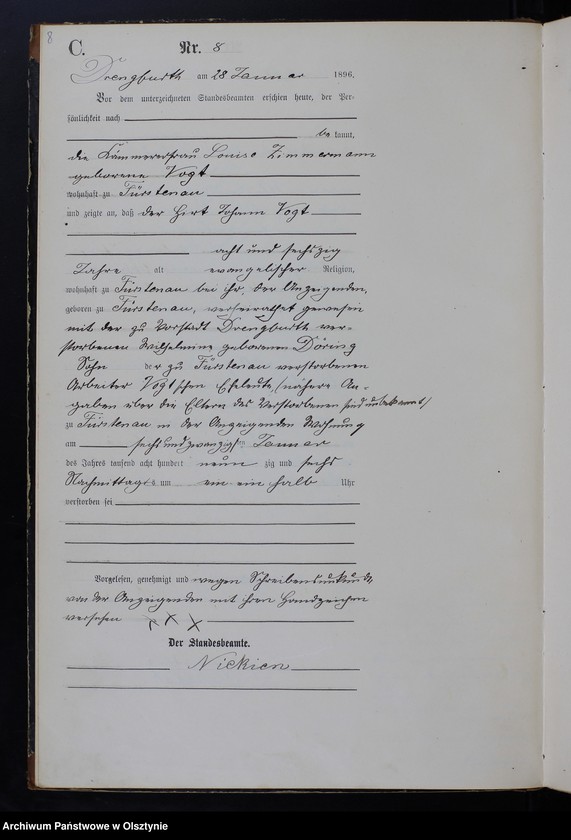 8
C.
Nr. 8
Drengfurth am 28 Januar 1896.
Vor dem unterzeichneten Standesbeamten erschien heute, der Per-
sönlichkeit nach
be kannt,
die Kämmererfrau Louise Zimmermann
geborene Vogt
wohnhaft zu Fürstenau
und zeigte an, daß der Hirt Johann Vogt
acht und sechszig
Jahre alt evangelischer Religion,
wohnhaft zu Fürstenau bei ihr, der Anzeigenden,
geboren zu Fürstenau, verheirathet gewesen
mit der zu Vorstadt Drengfurth ver-
storbenen Wilhelmine geborenen Döring
Sohn der zu Fürstenau verstorbenen
Arbeiter Vogt'schen Eheleute, (nähere An-
gaben über die Eltern des Verstorbenen sind unbekannt)
zu Fürstenau in der Anzeigenden Wohnung
am sechsundzwanzigsten Januar
des Jahres tausend acht hundert neun zig und sechs
Nachmittags um ein ein halb Uhr
verstorben sei
Vorgelesen, genehmigt und wegen Schreibensunkunde
von der Anzeigenden mit ihren Handzeichen
versehen X X X
Der Standesbeamte.
Nickien
Archiwum Państwowe w Olsztynie